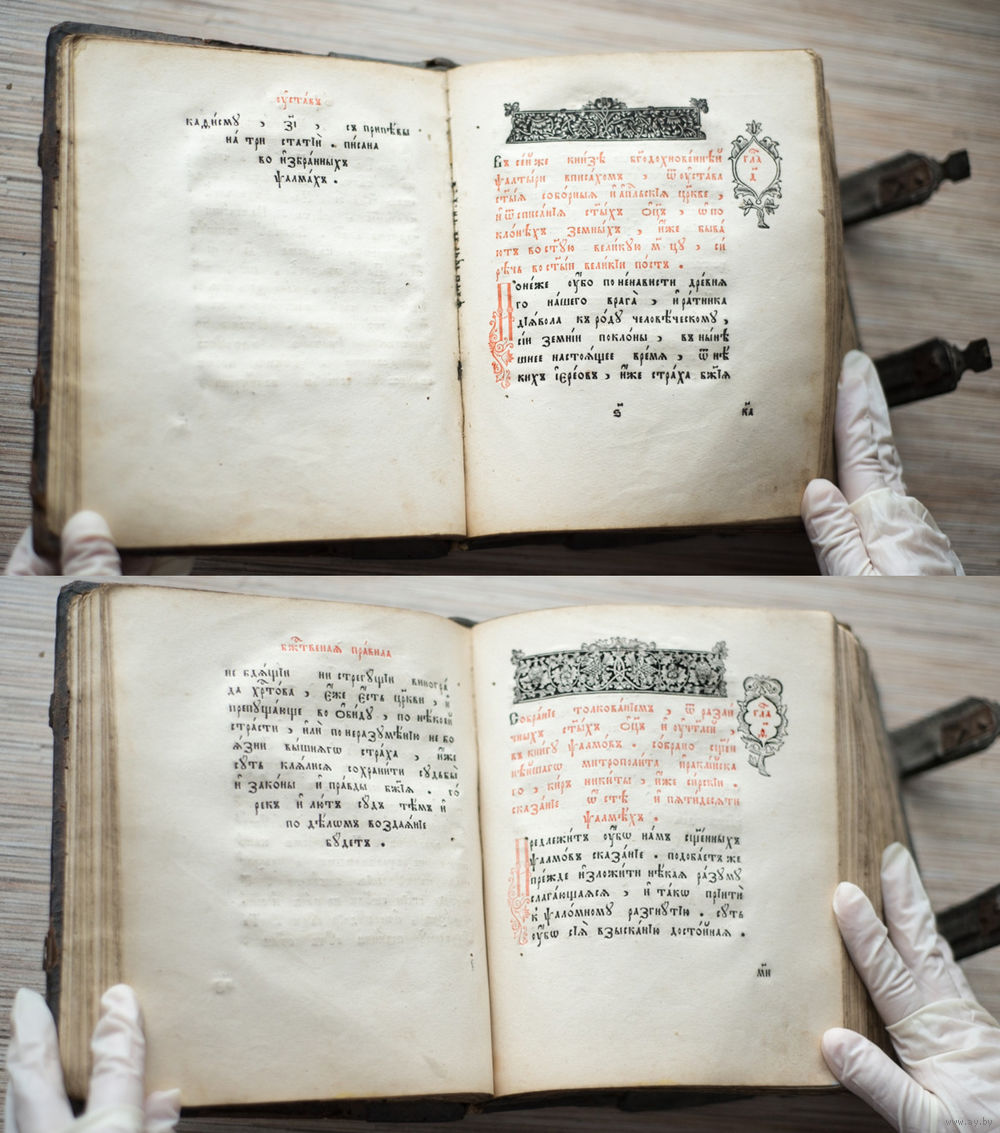 оу҆ста́въ
кади́сму , з҃і , съ припѣ́вы
на́ три статїи̑ . пи́сана
во и҆збра́нныхъ
ѱалма́хъ .
Въ се́й же кни́зѣ бг҃одохнове́ннѣй
ѱалты́ри вписа́хомъ , ѿ оу҆ста́ва
ст҃ы́ѧ собо́рныѧ и҆ а҆пⷭ҇льскїѧ цр҃кве ,
и҆ ѿ списа́нїѧ ст҃ы́хъ ѻ҆ц҃ъ , ѡ҆ по
клонѣ́хъ земны́хъ , и҆́же быва́
ютъ во ст҃у́ю вели́кую м҃ цу , си́
рѣчь во ст҃ы́и вели́кїи по́стъ .
гла
д҃
Поне́же оу҆́бо по не́нависти дре́внѧ
го на́шего врага̀ , и҆ ра́тника
дїѧ́вола къ ро́ду человѣ́ческому ,
сїи̑ земні́и покло́ны , въ ны́нѣ
шнее настоѧ́щее вре́мѧ , ѿ нѣ́
кихъ і҆ере́овъ , и҆́же стра́ха бж҃їѧ
ѕ҃
к҃а
бжⷭ҇твенаѧ пра́вила
не бдѧ́щїи ни стрегу́щїи виногра́
да хрⷭ҇то́ва , є҆́же є҆́сть цр҃кви , и҆
препуща́юще во ѻ҆би́ду , по нѣ́коей
стра́сти , и҆лѝ по неразумѣ́нїю не бо
ѧ́зни вы́шнѧгѡ стра́ха , и҆́же
су́ть клѧ́лисѧ сохрани́ти судьбы̀
и҆ зако́ны и҆ пра́вды бж҃їѧ . го́
рекъ и҆ лю́тъ су́дъ тѣ́мъ и҆
по дѣло́мъ воздаѧ́нїе
бу́детъ .
Собра́нїе толкова́нїемъ , ѿ разли́
чныхъ ст҃ы́хъ ѻ҆ц҃ъ и҆ оу҆чт҃лїй ,
въ кни́гу ѱалмо́въ . собрано сщ҃е́н
нѣ́йшагѡ митрополи́та и҆ракли́йска
го , кѵ́ръ ники́ты , и҆́же си́рскїи .
сказа́нїе ѿ стѣ̀ и҆ пѧти́десѧти
ѱалмѣ́хъ .
гла
а҃
Предлежи́тъ оу҆́бѡ на́мъ сщ҃е́нныхъ
ѱалмо́въ сказа́нїе . подоба́етъ же
пре́жде и҆зложи́ти нѣ́каѧ ра́зуму
слага́ющаѧсѧ , и҆ та́кѡ прїитѝ
к҆ ѱало́мному разгну́тїю . су́ть
оу҆́бѡ сїѧ̀ взыска́нїю досто́йнаѧ .
м҃и
www.ay.by